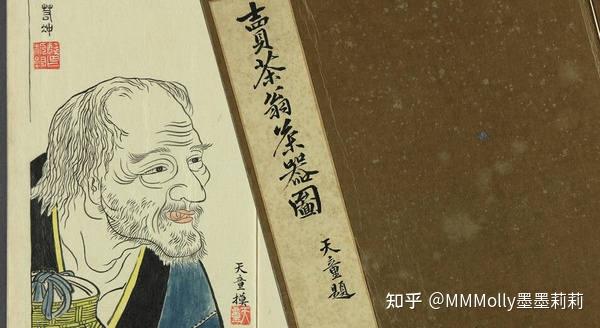 賣茶翁茶器圖
天童題
天童摸
知乎 @MMMolly墨墨莉莉